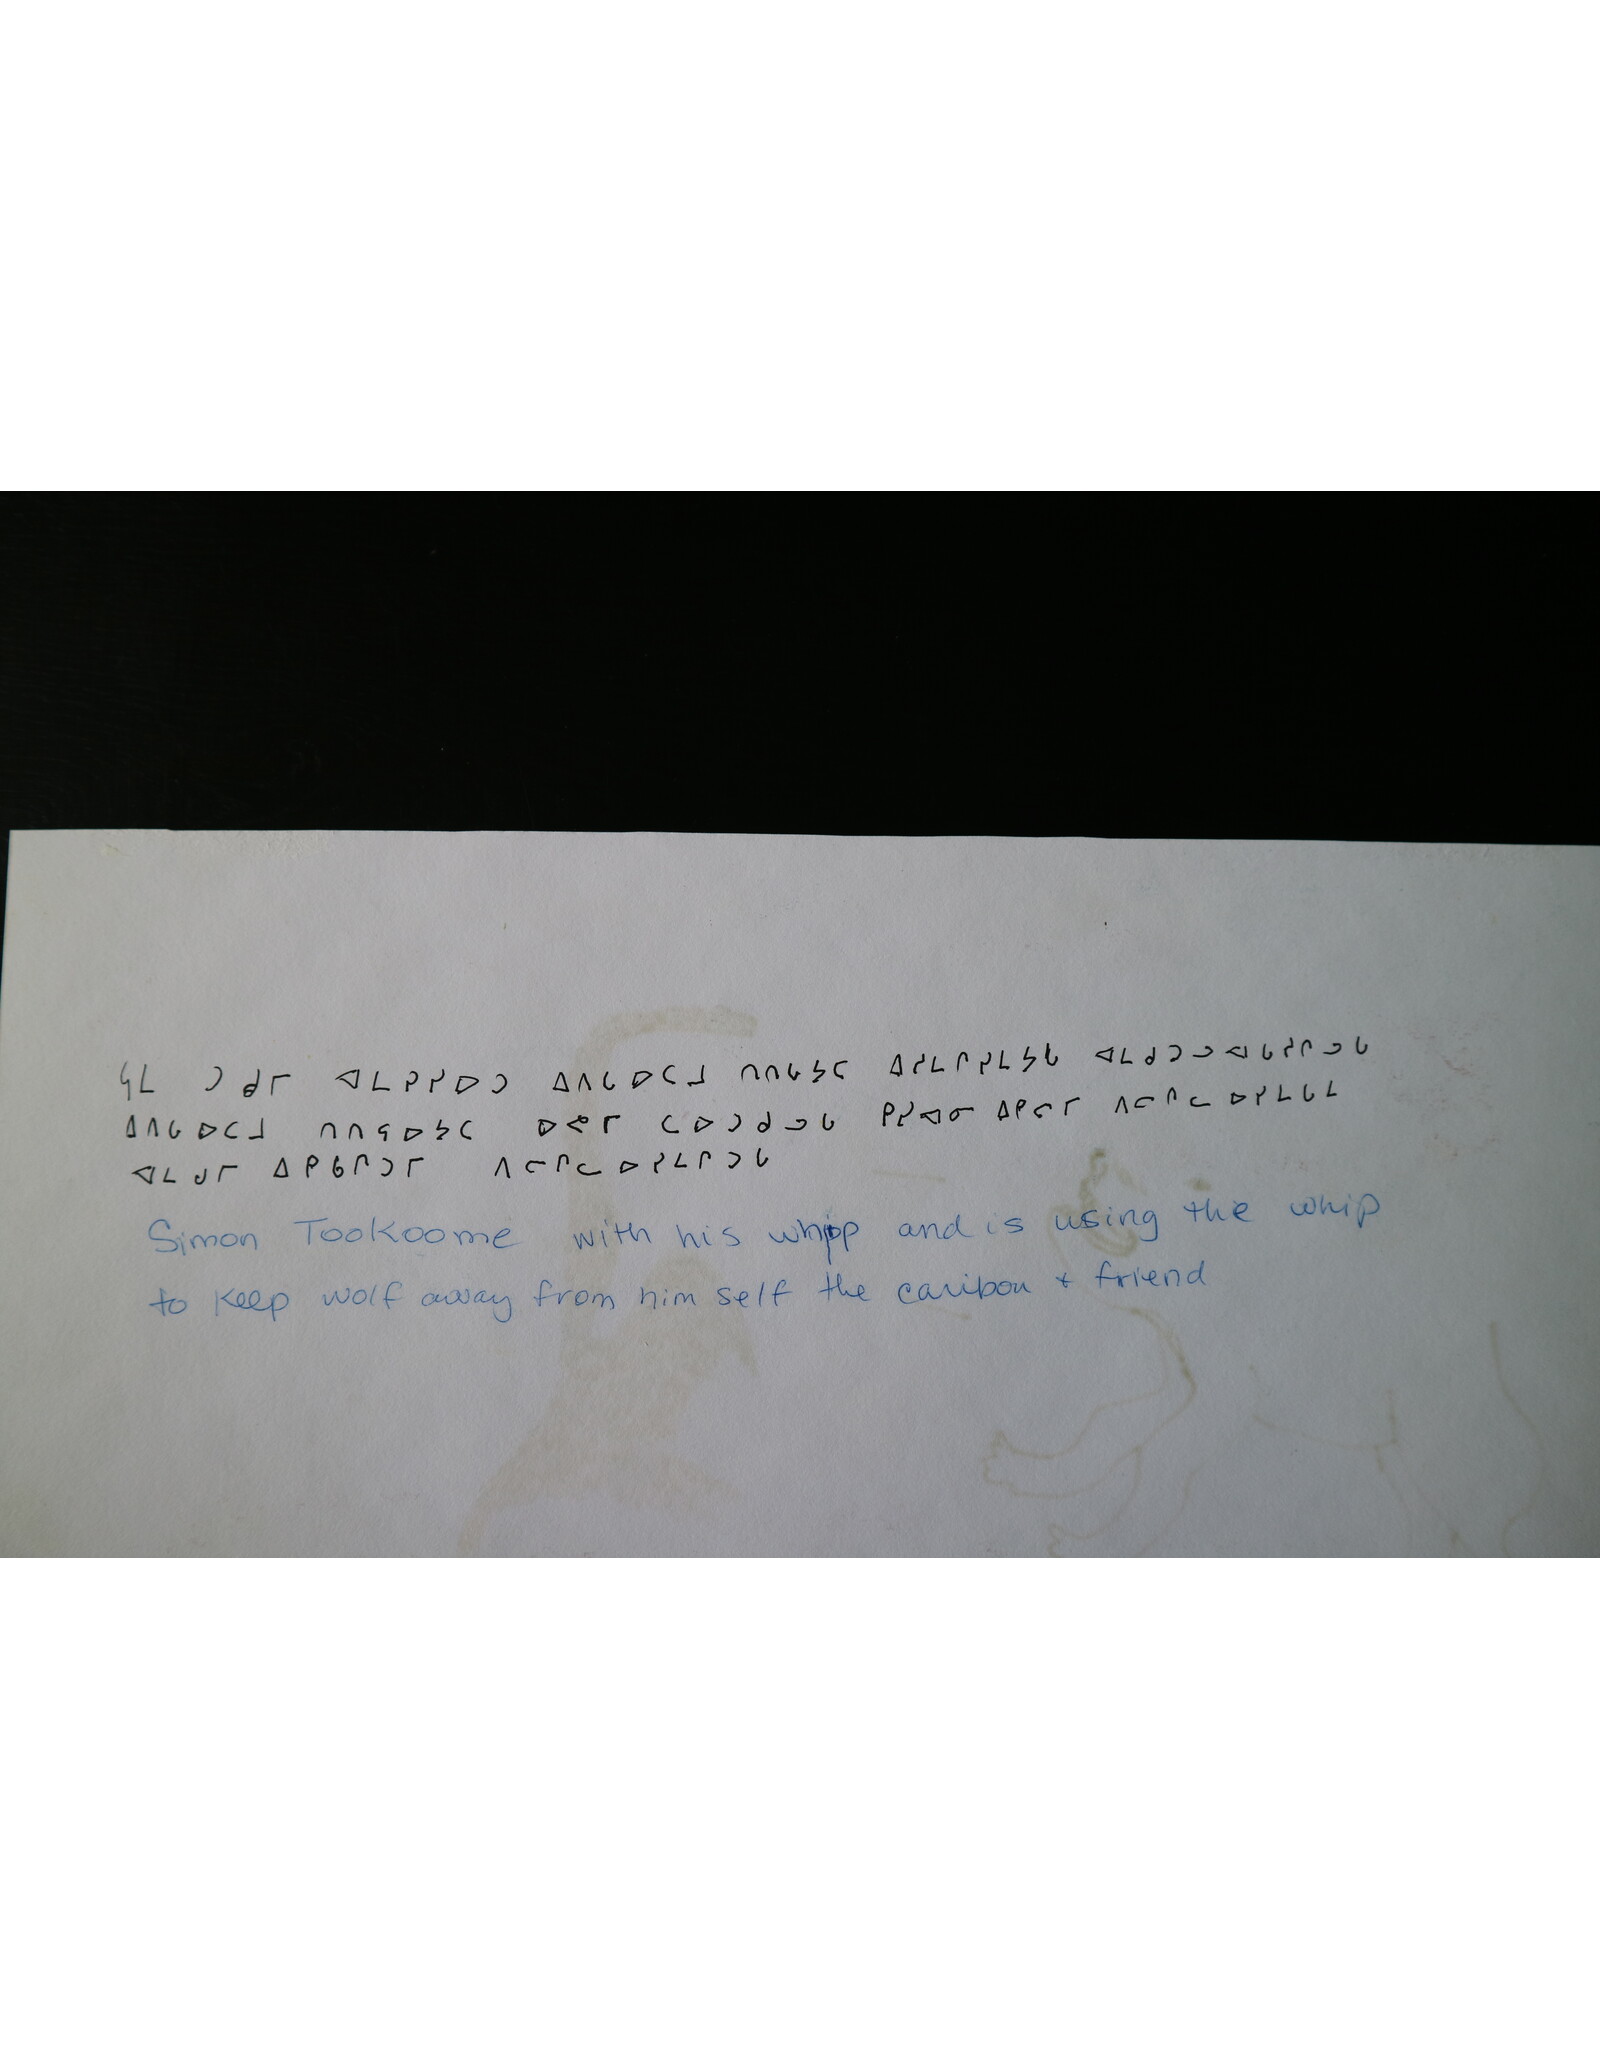 ᓴᒪ ᑐᑯᒥ ᐊᒪᕈᓯᐅᑐ ᐃᐱᕋᐅᑕᒧ ᑎᑎᕋᔭᑕ ᐃᓱᒪᒋᓱᒪᔭᕋ ᐊᒪᑯᑐᓗᐊᕋᓱᒋᓗᓂ
ᐃᐱᕋᐅᑕᒧ ᑎᑎᕋᐅᔭᑕ ᐅᕙᒥ ᑕᐅᑐᑯᓗᒐ ᑭᓯᐊᓂ ᐃᑭᓕᒥ ᐱᓕᕆᓚᐅᓱᒪᒐᒪ
ᐊᒪᓗᒥ ᐃᑭᑲᒋᑐᒥ ᐱᓕᕆᓚᐅᓱᒪᒋᑐᒐ
Simon Tookoome with his whipp and is using the whip
to keep wolf away from him self the caribou + friend